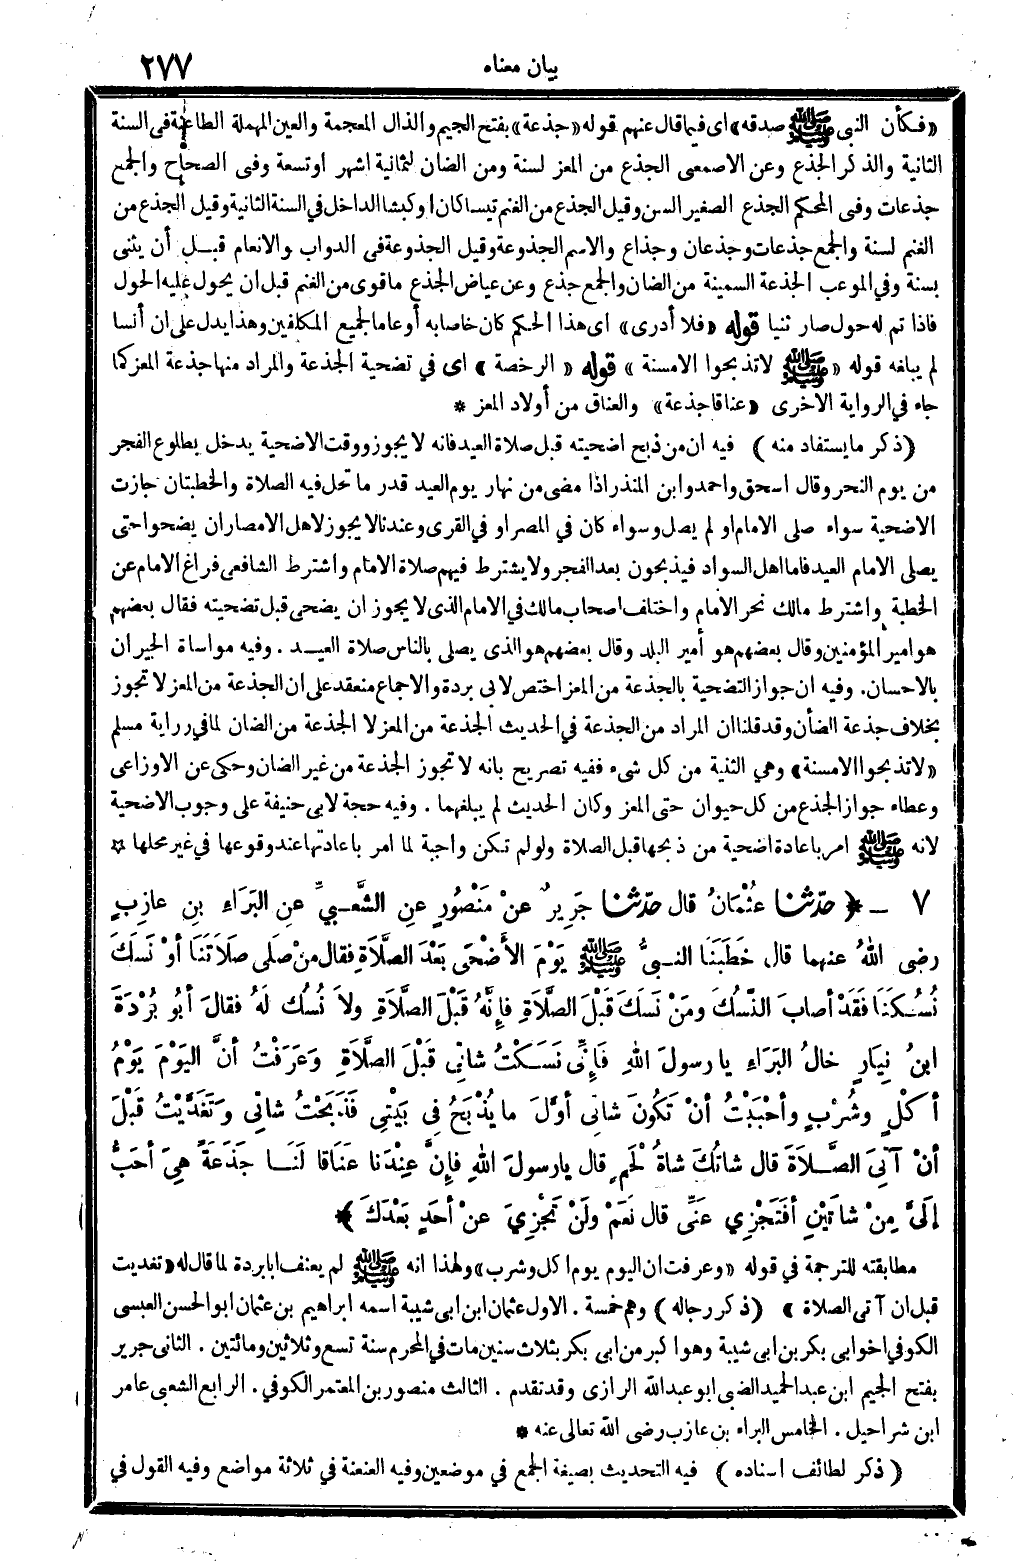 بيان معناه ٢٧٧
«فكأن النبى ﷺ صدقه» اى فيما قال عنهم قوله «جذعة» بفتح الجيم والذال المعجمة والعين المهملة الطاعنة فى السنة
الثانية والذكر الجذع وعن الاصمعى الجذع من المعز لسنة ومن الضان لثمانية اشهر اوتسعة وفى الصحاح والجمع
جذعات وفى المحكم الجذع الصغير السن وقيل الجذع من الغنم تيسا كان او كبشا الداخل في السنة الثانية وقيل الجذع من
الغنم لسنة والجمع جذعات وجذعان وجذاع والاسم الجذوعة وقيل الجذوعة فى الدواب والانعام قبل أن يثنى
بسنة وفي الموعب الجذعة السمينة من الضان والجمع جذع وعن عياض الجذع ما قوى من الغنم قبل ان يحول عليه الحول
فاذا تم له حول صار ثنيا قوله «فلا أدرى» اى هذا الحكم كان خاصا به أو عاما لجميع المكلفين وهذا يدل على ان أنسا
لم يبلغه قوله «ﷺ لا تذبحوا الا مسنة» قوله «الرخصة» اى في تضحية الجذعة والمراد منها جذعة المعز كما
جاء في الرواية الاخرى «عناقا جذعة» والعناق من أولاد المعز *
(ذكر ما يستفاد منه) فيه ان من ذبح اضحيته قبل صلاة العيد فانه لا يجوز ووقت الاضحية يدخل بطلوع الفجر
من يوم النحر وقال اسحق واحمد وابن المنذر اذا مضى من نهار يوم العيد قدر ما تحل فيه الصلاة والخطبتان جازت
الاضحية سواء صلى الامام او لم يصل وسواء كان في المصر او في القرى وعندنا لا يجوز لاهل الامصار ان يضحوا حتى
يصلى الامام العيد فاما اهل السواد فيذبحون بعد الفجر ولا يشترط فيهم صلاة الامام واشترط الشافعى فراغ الامام عن
الخطبة واشترط مالك نحر الامام واختلف اصحاب مالك في الامام الذى لا يجوز ان يضحى قبل تضحيته فقال بعضهم
هو امير المؤمنين وقال بعضهم هو أمير البلد وقال بعضهم هو الذى يصلى بالناس صلاة العيد . وفيه مواساة الجيران
بالاحسان. وفيه ان جواز التضحية بالجذعة من المعز اختص لابى بردة والاجماع منعقد على ان الجذعة من المعز لا تجوز
بخلاف جذعة الضأن وقد قلنا ان المراد من الجذعة في الحديث الجذعة من المعز لا الجذعة من الضان لما في رراية مسلم
«لا تذبحوا الا مسنة» وهي الثنية من كل شىء ففيه تصريح بانه لا تجوز الجذعة من غير الضان وحكى عن الاوزاعى
وعطاء جواز الجذع من كل حيوان حتى المعز وكان الحديث لم يبلغهما . وفيه حجة لابى حنيفة على وجوب الاضحية
لانه ﷺ امر باعادة اضحية من ذبحها قبل الصلاة ولو لم تكن واجبة لما امر باعادتها عند وقوعها في غير محلها *
٧ ـ ﴿ حدّثنا عُثْمَانُ قال حدّثنا جَرِيرٌ عنْ مَنْصُورٍ عنِ الشَّعْبِيِّ عنِ البَرَاءِ بنِ عازِبٍ
رضى اللهُ عنهما قال خَطَبَنَا النبىُّ ﷺ يَوْمَ الأَضْحَى بَعْدَ الصَّلَاةِ فقال من صَلَى صَلاَتَنَا أوْ نَسَكَ
نُسُكَنَا فَقَدْ أصابَ النُّسُكَ ومَنْ نَسَكَ قَبْلَ الصَّلَاةِ فإنَّهُ قَبْلَ الصَّلَاةِ ولاَ نُسُكَ لَهُ فقالَ أبُو بُرْدَةَ
ابنُ نِيَارٍ خالُ البَرَاءِ يا رسولَ اللهِ فَإنِّى نَسَكْتُ شاتى قَبْلَ الصَّلَاةِ وَعَرَفْتُ أنَّ اليَوْمَ يَوْمُ
أكْلٍ وشُرْبٍ وأحْبَبْتُ أنْ تَكُونَ شاتى أوَّلَ ما يُذْبَحُ فِى بَيْتِى فَذَبَحْتُ شاتِى وَتَغَدَّيْتُ قَبْلَ
أنْ آتِىَ الصَّلاَةَ قال شاتُكَ شاةُ لَحْمٍ قال يا رسولَ اللهِ فإنَّ عِنْدَنا عَناقَا لَنَا جَذَعَةً هِىَ أحَبُّ
إلَىَّ مِنْ شاتَيْنِ أفَتَجْزِي عَنِّى قال نَعَمْ ولَنْ تَجْزِيَ عنْ أحَدٍ بَعْدَكَ ﴾
مطابقته للترجمة في قوله «وعرفت ان اليوم يوم اكل وشرب» ولهذا انه ﷺ لم يعنف ابا بردة لما قال له «تغديت
قبل ان آتى الصلاة» (ذكر رجاله) وهم خمسة . الاول عثمان ابن ابى شيبة اسمه ابراهيم بن عثمان ابو الحسن العبسى
الكوفي اخو ابى بكر بن ابى شيبة وهو اكبر من ابى بكر بثلاث سنين مات في المحرم سنة تسع وثلاثين ومائتين . الثانى جرير
بفتح الجيم ابن عبد الحميد الضبى ابو عبد الله الرازى وقد تقدم . الثالث منصور بن المعتمر الكوفي . الرابع الشعبى عامر
ابن شراحيل . الخامس البراء بن عازب رضى الله تعالى عنه *
(ذكر لطائف اسناده) فيه التحديث بصيغة الجمع في موضعين وفيه العنعنة في ثلاثة مواضع وفيه القول في